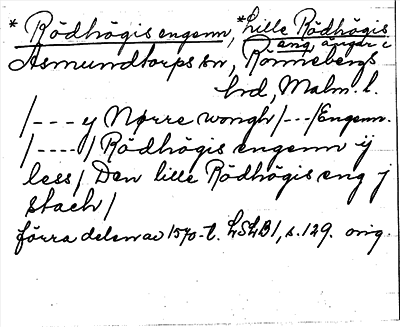 * Rödhögis engenn, *Lille Rödhögis
eng, ängar i
Asmundtorps sn, Rönnebergs
hd, Malm. l.
/--- y Nørre wongh/---/Engenn.
/----/ Rödhögis engenn ij
less/ Den lille Rödhögis eng j
stach/
förra delen av 1570-t. LSLB1, s. 129. orig.